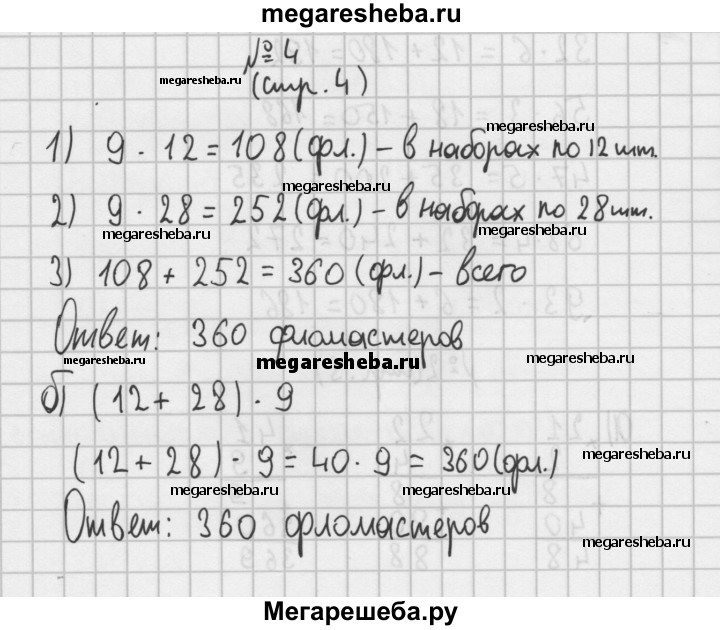 megaresheba.ru
№ 4
megaresheba.ru
(стр. 4)
megaresheba.ru
1) 9 · 12 = 108 (фл.) – в наборах по 12 шт.
megaresheba.ru
2) 9 · 28 = 252 (фл.) – в наборах по 28 шт.
megaresheba.ru megaresheba.ru
3) 108 + 252 = 360 (фл.) – всего
Ответ: 360 фломастеров
megaresheba.ru megaresheba.ru megaresheba.ru
б) (12 + 28) · 9
(12 + 28) · 9 = 40 · 9 = 360 (фл.)
megaresheba.ru
megaresheba.ru megaresheba.ru
Ответ: 360 фломастеров
megaresheba.ru
Мегарешеба.ру